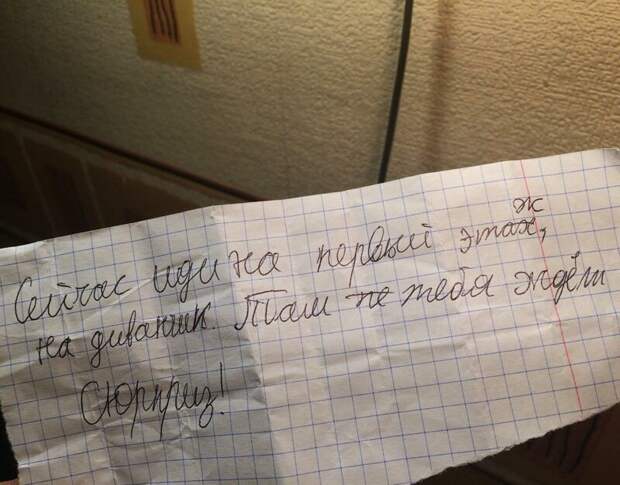 ж
Сейчас иди на первый этах,
на диванчик. Там не тебя ждёт
Сюрприз!